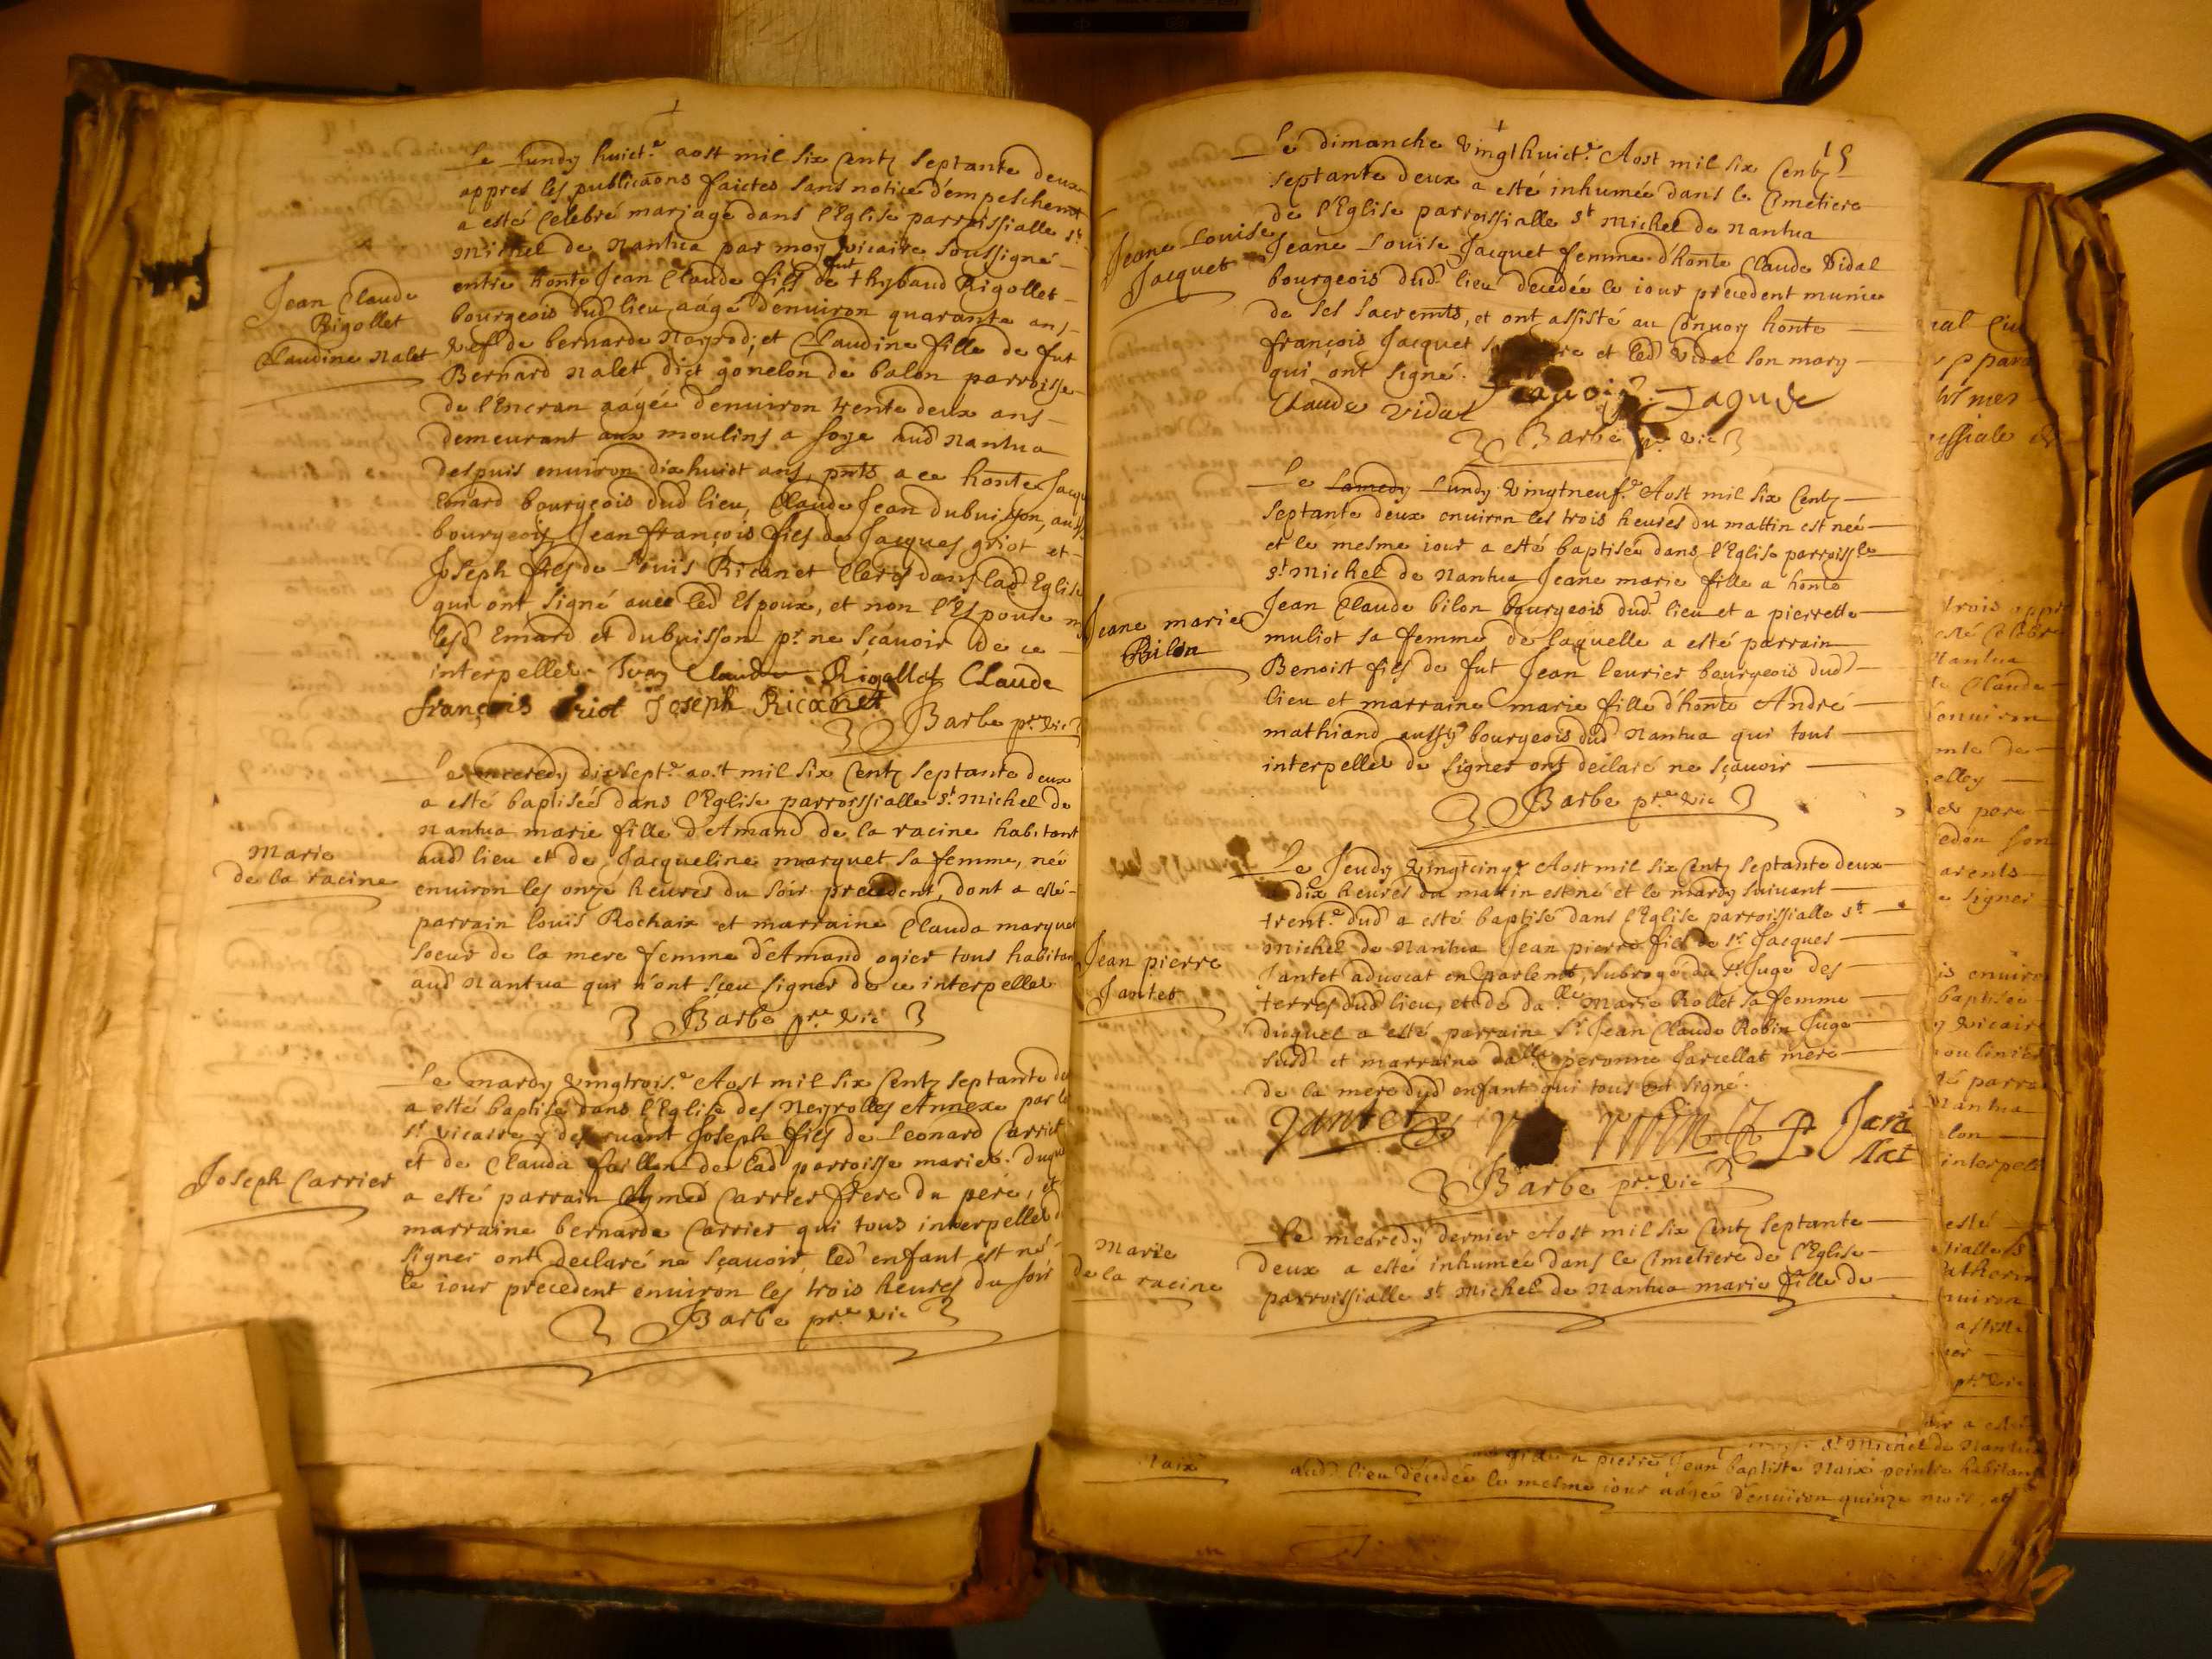 Le Lundy huict.e aost mil six Centz septante deux
appres les publicaōns faictes sans notice d'empeschemt
a esté Celebré mariage dans l'Eglise parroissialle st
michel de Nantua par moy vicaire soussigné
entre honte Jean Claude fils de fut thybaud Rigollet
bourgeois dud lieu, aagé d'enuiron quarante ans
Jean Claude
Rigollet
Claudine Nalet
vef de bernarde Neyrod; et Claudine fille de fut
Bernard Nalet, dict gonelon de balon parroisse
de l'Encran aagée d'enuiron trente deux ans
demeurant aux moulins a soye aud Nantua
despuis enuiron dixhuict ans, pnts a ce honte Jacqu
Emard bourgeois dud lieu, Claude Jean dubuisson, aussy
bourgeois Jean françois fils de Jacques griot et
Joseph fils de Louis Ricanet Clercs dans lad Eglise
qui ont signé auec led Espoux, et non l'Espouse ny
lesd Emard et dubuisson pr ne sçauoir de ce
interpellez. Ivan Claude Rigollet Claude
françois Griot Joseph Ricanet
Barbe pre vic
Le mecredy dixsept.e aost mil six Centz septante deux
a esté baptisée dans l'Eglise parroissialle st michel de
Nantua marie fille d'Amand de la racine habitant
aud lieu et de Jacqueline marquet sa femme, née
Marie
de la racine
enuiron les onze heures du soir precedent, dont a esté
parrain louis Rochaix et marraine Clauda marquet
soeur de la mere femme d'Amand ogier tous habitan
aud Nantua qui n'ont sceu signer de ce interpellez
Barbe pre vic
Le mardy vingtrois.e Aost mil six Centz septante de
a esté baptisé dans l'Eglise des Neyrolles Annexe par le
st vicaire y deseruant Joseph fils de Leonard Carrier
et de Clauda faillon de lad parroisse mariés. duqu
Joseph Carrier
a esté parrain Aymed Carrier frere du pere, et
marraine bernarde Carrier qui tous interpellez d
signer ont declaré ne sçauoir, led enfant est né
le iour precedent enuiron les trois heures du soir
Barbe pre vic
15
Le dimanche vingthuict.e Aost mil six Centz
septante deux a esté inhumée dans le Cimetiere
de l'Eglise parroissialle st michel de Nantua
Jeane Louise
Jacquet
Jeane Louise Jacquet femme d'honte Claude Vidal
bourgeois dud lieu decedée le iour precedent munie
de ses sacremts, et ont assisté au Conuoy honte
françois Jacquet et led Vidal son mary
qui ont signé.
Claude vidal
Barbe pre vic
Le Samedy Lundy vingtneuf.e Aost mil six Centz
septante deux enuiron les trois heures du mattin est née
et le mesme iour a esté baptisée dans l'Eglise parroissle
st Michel de Nantua Jeane marie fille a honte
Jeane marie
Bilon
Jean Claude bilon bourgeois dud lieu et a pierrette
muliot sa femme de laquelle a esté parrain
Benoist fils de fut Jean leurier bourgeois dud
lieu et marraine marie fille d'honte André
mathiand aussy bourgeois dud Nantua qui tous
interpellez de signer ont declaré ne sçauoir
Barbe pre vic
Le Jeudy vingtcinq.e Aost mil six Centz septante deux
dix heures du mattin est né et le mardy suiuant
trent.e dud a esté baptisé dans l'Eglise parroissialle st
Jean pierre
Jantet
michel de Nantua Jean pierre fils de sr Jacques
Jantet aduocat en parlemt, subrogé du sr Juge des
terres dud lieu, et de dalle Marie Rollet sa femme
duquel a esté parrain sr Jean Claude Robin Juge
susd et marraine dalle peronne Jarcellat mere
de la mere dud enfant qui tous ont signé.
Jantet
Barbe pre vic
Marie
de la racine
Le mecredy dernier Aost mil six Centz septante
deux a esté inhumée dans le Cimetiere de l'Eglise
parroissialle st Michel de Nantua marie fille de
st Michel de Nantua
Jean baptiste Naix peintre habitant
aud lieu décedée le mesme iour aagée d'enuiron quinze mois, et